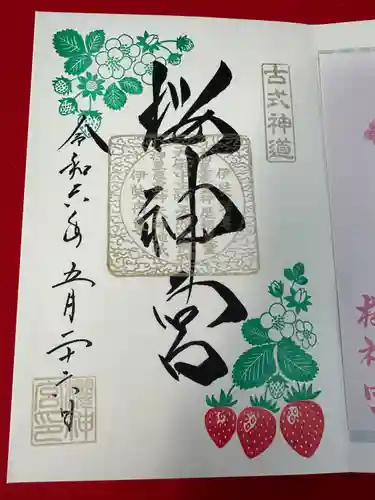 古式神道
桜神宮
令和六年五月二十六日
桜神宮